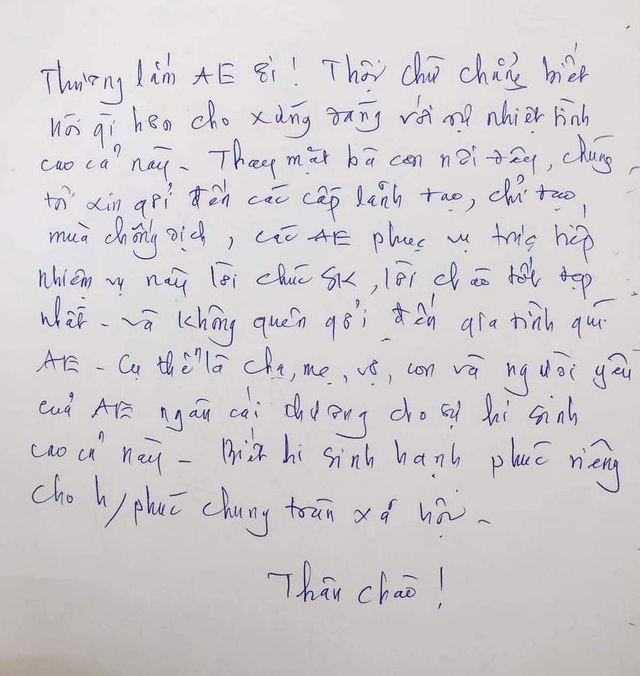 Thương lắm AE ơi! Thật chứ chẳng biết
nói gì hơn cho xứng đáng với sự nhiệt tình
cao cả này - Thay mặt bà con nơi đây, chúng
tôi xin gởi đến các cấp lãnh đạo, chỉ đạo
mùa chống dịch, các AE phục vụ trực tiếp
nhiệm vụ này lời chúc SK, lời chào tốt đẹp
nhất - và không quên gởi đến gia đình quí
AE - Cụ thể là cha, mẹ, vợ, con và người yêu
của AE ngàn cái thương cho sự hi sinh
cao cả này - Biết hi sinh hạnh phúc riêng
cho h/phúc chung toàn xã hội -
Thân chào!